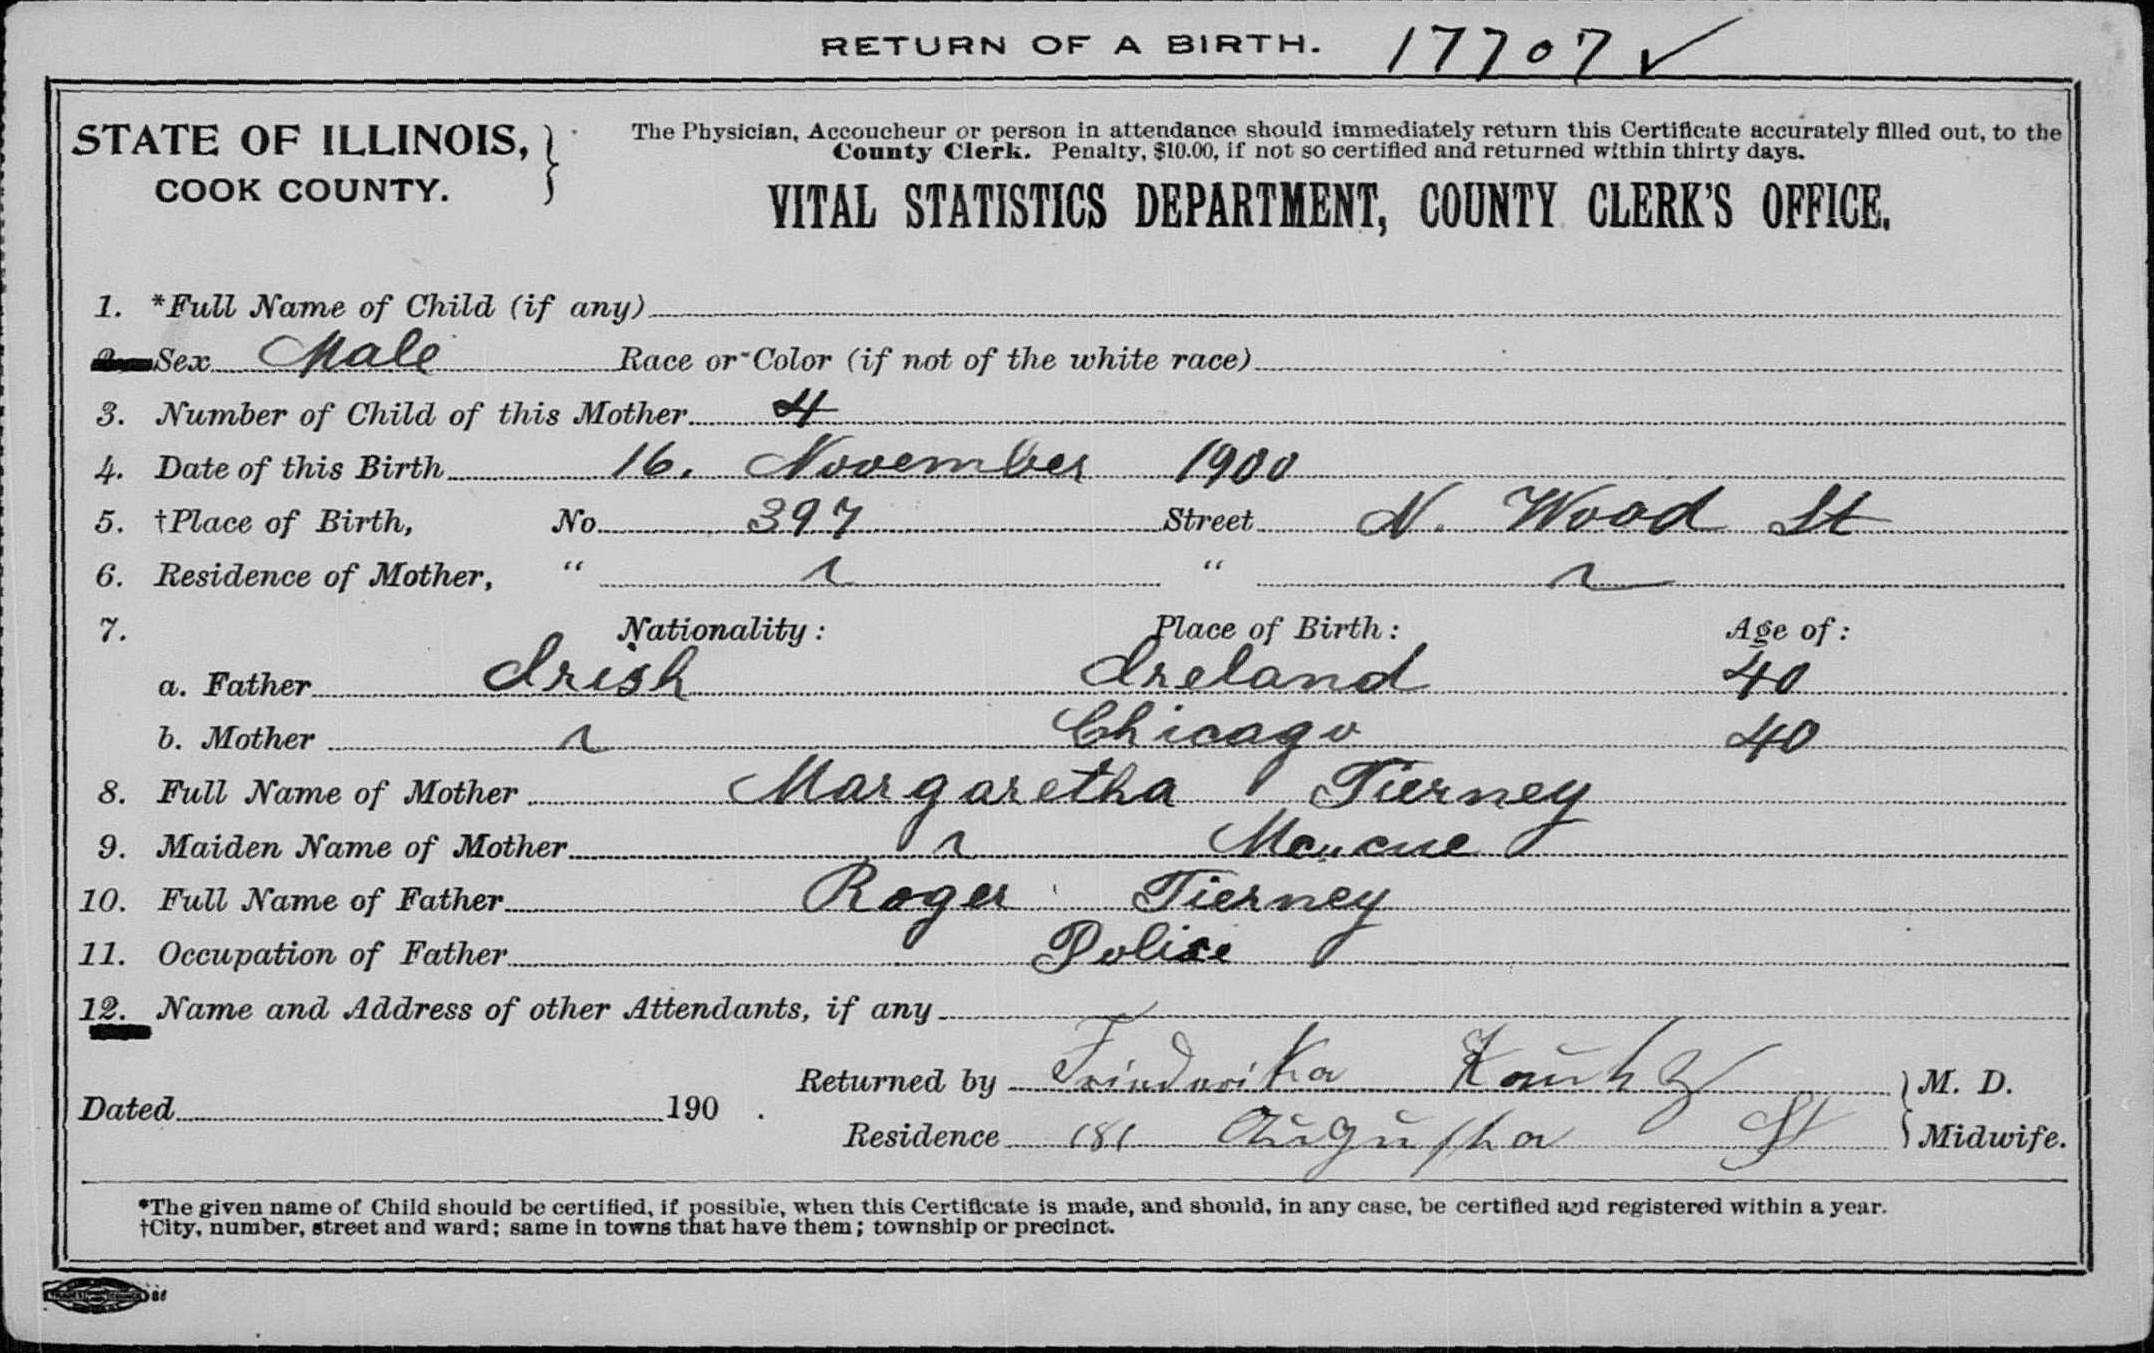 RETURN OF A BIRTH. 17707 ✓
STATE OF ILLINOIS,
COOK COUNTY.
The Physician, Accoucheur or person in attendance should immediately return this Certificate accurately filled out, to the
County Clerk. Penalty, $10.00, if not so certified and returned within thirty days.
VITAL STATISTICS DEPARTMENT, COUNTY CLERK'S OFFICE.
1. *Full Name of Child (if any)
Sex Male Race or Color (if not of the white race)
3. Number of Child of this Mother 4
4. Date of this Birth 16. November 1900
5. †Place of Birth, No. 397 Street N. Wood St
6. Residence of Mother, " "
7. Nationality: Place of Birth: Age of:
a. Father Irish Ireland 40
b. Mother Chicago 40
8. Full Name of Mother Margaretha Tierney
9. Maiden Name of Mother Mc„cue
10. Full Name of Father Roger Tierney
11. Occupation of Father Police
12. Name and Address of other Attendants, if any
Returned by M. D.
Dated 190 .
Residence 181 Augusta St Midwife.
*The given name of Child should be certified, if possible, when this Certificate is made, and should, in any case, be certified and registered within a year.
†City, number, street and ward; same in towns that have them; township or precinct.